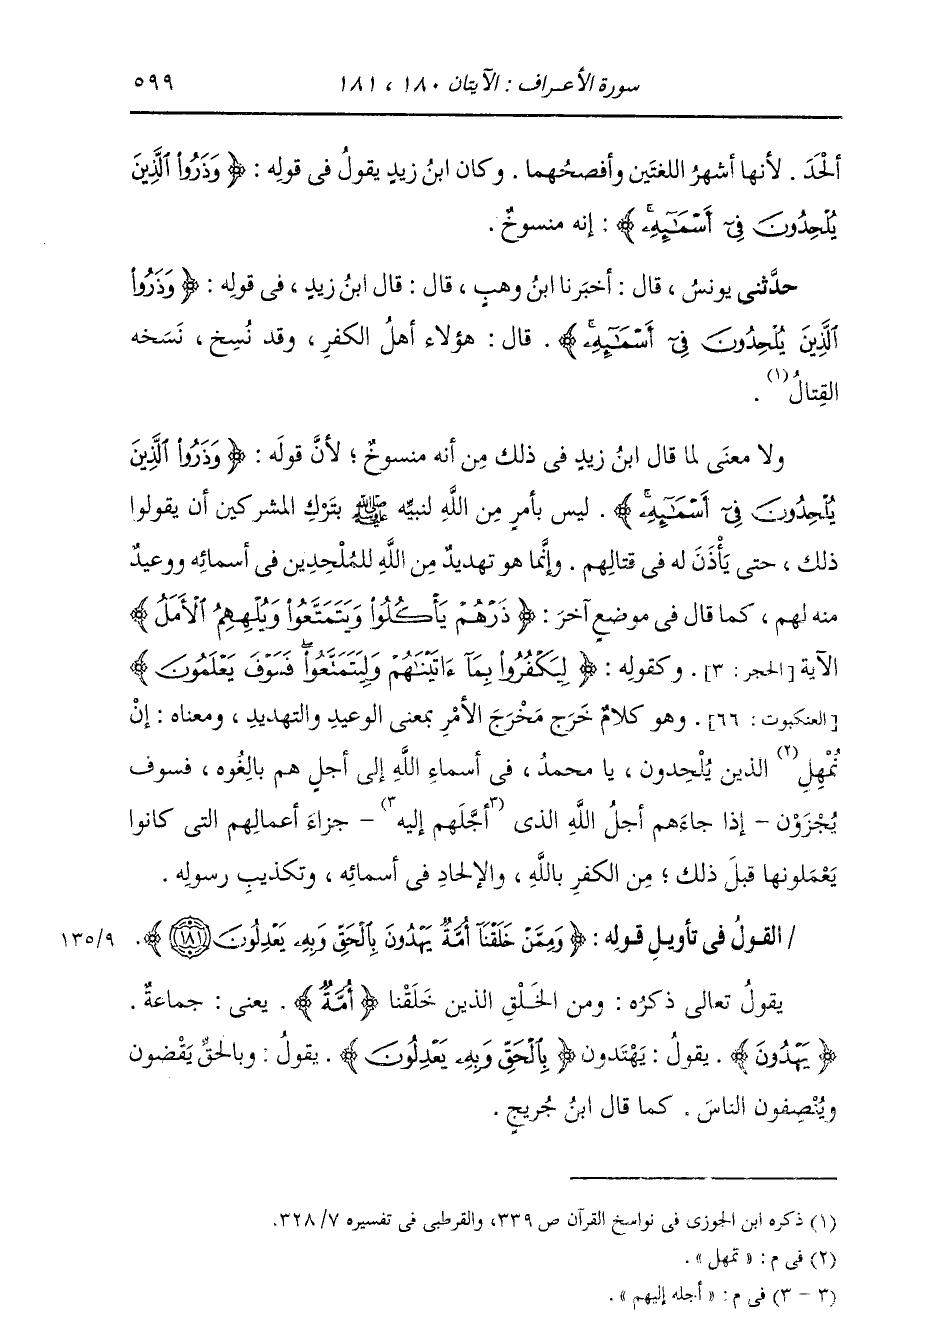 سورة الأعراف : الآيتان ١٨٠ ، ١٨١ ٥٩٩
ألْحَدَ . لأنها أشهرُ اللغتَين وأفصحُهما . وكان ابنُ زيدٍ يقولُ فى قولِه : ﴿ وَذَرُوا۟ ٱلَّذِينَ
يُلْحِدُونَ فِىٓ أَسْمَـٰٓئِهِۦۚ ﴾ : إنه منسوخٌ .
حدَّثنى يونسُ ، قال : أخبَرنا ابنُ وهبٍ ، قال : قال ابنُ زيدٍ ، فى قولِه : ﴿ وَذَرُوا۟
ٱلَّذِينَ يُلْحِدُونَ فِىٓ أَسْمَـٰٓئِهِۦۚ ﴾ . قال : هؤلاء أهلُ الكفرِ ، وقد نُسِخ ، نَسَخه
القِتالُ(١) .
ولا معنَى لما قال ابنُ زيدٍ فى ذلك مِن أنه منسوخٌ ؛ لأنَّ قولَه : ﴿ وَذَرُوا۟ ٱلَّذِينَ
يُلْحِدُونَ فِىٓ أَسْمَـٰٓئِهِۦۚ ﴾ . ليس بأمرٍ مِن اللَّهِ لنبيِّه ﷺ بتَرْكِ المشركين أن يقولوا
ذلك ، حتى يَأْذَنَ له فى قتالِهم . وإنَّما هو تهديدٌ مِن اللَّهِ للمُلْحِدِين فى أسمائِه ووعيدٌ
منه لهم ، كما قال فى موضعٍ آخرَ : ﴿ ذَرْهُمْ يَأْكُلُوا۟ وَيَتَمَتَّعُوا۟ وَيُلْهِهِمُ ٱلْأَمَلُ ﴾
الآية [الحجر : ٣] . وكقولِه : ﴿ لِيَكْفُرُوا۟ بِمَآ ءَاتَيْنَـٰهُمْ وَلِيَتَمَتَّعُوا۟ۖ فَسَوْفَ يَعْلَمُونَ ﴾
[العنكبوت : ٦٦] . وهو كلامٌ خَرَج مَخْرَجَ الأمْرِ بمعنى الوعيدِ والتهديدِ ، ومعناه : إنْ
نُمْهِلِ(٢) الذين يُلْحِدون ، يا محمدُ ، فى أسماءِ اللَّهِ إلى أجلٍ هم بالِغُوه ، فسوف
يُجْزَوْن - إذا جاءَهم أجلُ اللَّهِ الذى (٣أجَّلَهم إليه٣) - جزاءَ أعمالِهم التى كانوا
يَعْمَلونها قبلَ ذلك ؛ مِن الكفرِ باللَّهِ ، والإلحادِ فى أسمائِه ، وتكذيبِ رسولِه .
/ القولُ فى تأويلِ قولِه : ﴿ وَمِمَّنْ خَلَقْنَآ أُمَّةٌ يَهْدُونَ بِٱلْحَقِّ وَبِهِۦ يَعْدِلُونَ (١٨١) ﴾ . ١٣٥/٩
يقولُ تعالى ذكرُه : ومن الخَلْقِ الذين خَلَقْنا ﴿ أُمَّةٌ ﴾ . يعنى : جماعةٌ .
﴿ يَهْدُونَ ﴾ . يقولُ : يَهْتَدون ﴿ بِٱلْحَقِّ وَبِهِۦ يَعْدِلُونَ ﴾ . يقولُ : وبالحقِّ يَقْضون
ويُنْصِفون الناسَ . كما قال ابنُ جُريجٍ .
(١) ذكره ابن الجوزى فى نواسخ القرآن ص ٣٣٩، والقرطبى فى تفسيره ٣٢٨/٧.
(٢) فى م : « تمهل » .
(٣ - ٣) فى م : « أجله إليهم » .